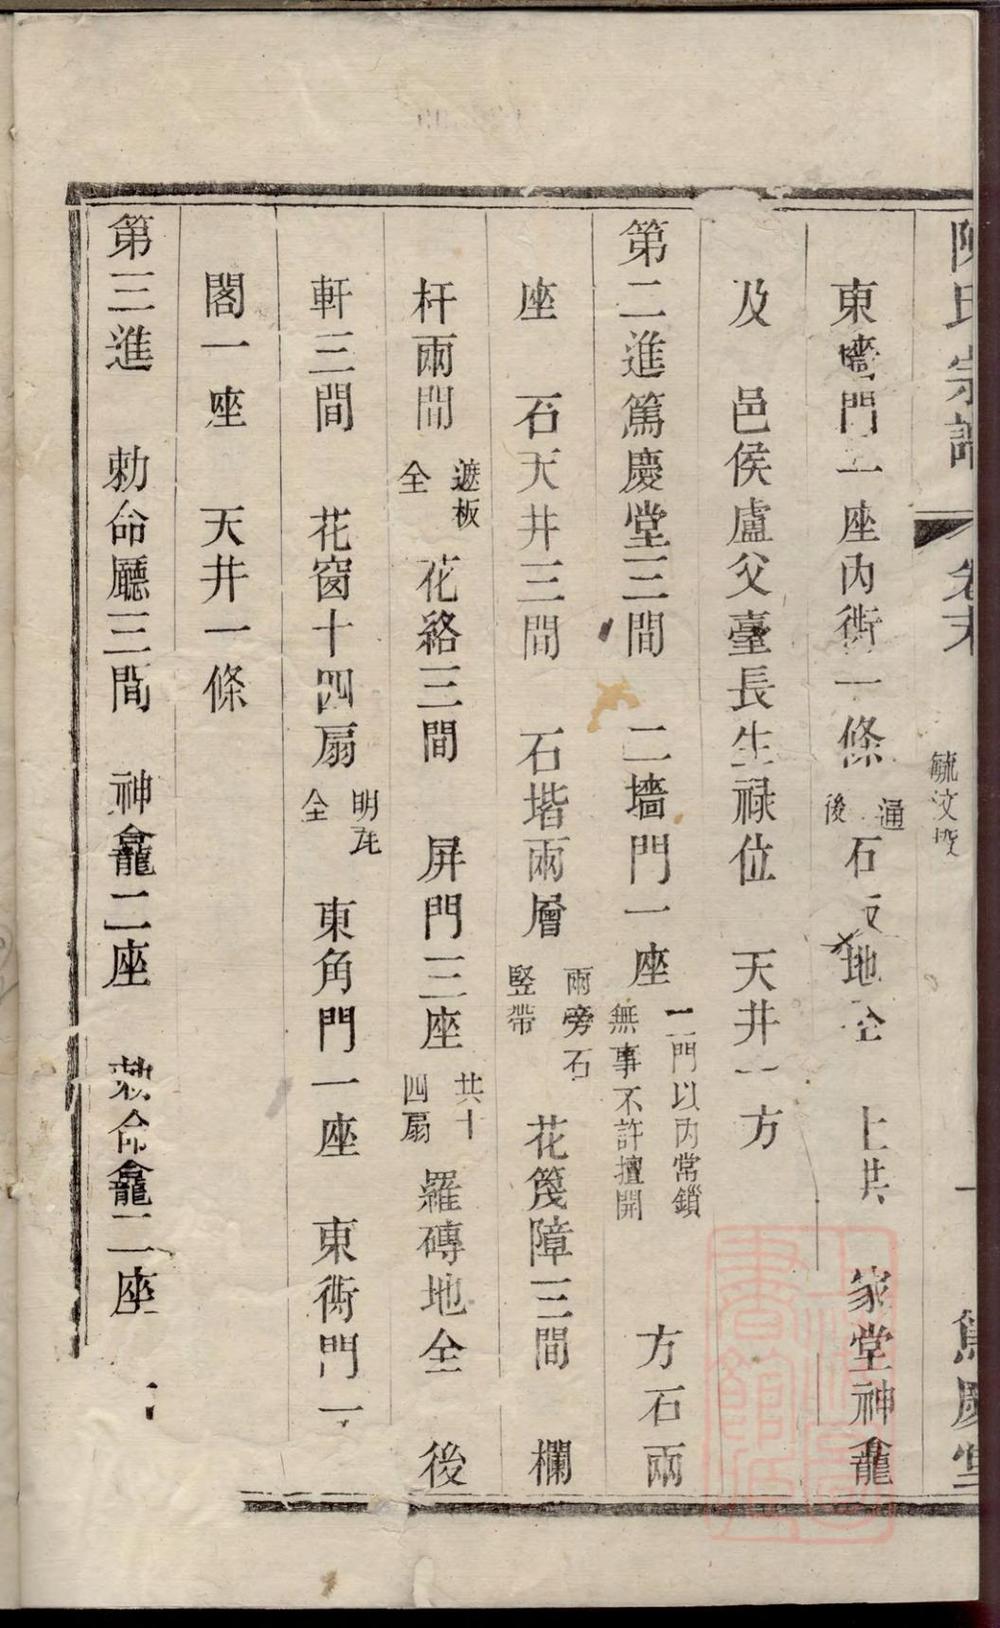 陳氏宗譜 卷末 毓汶 一 篤慶堂
東牆門一座內衖一條 通後 石 地全 上共 家堂神龕
及 邑侯盧父臺長生禄位 天井一方
第二進篤慶堂三間 二墻門一座 二門以內常鎖無事不許擅開 方石兩
座 石天井三間 石堦兩層 兩旁石竪帶 花篾障三間 欄
杆兩間 遮板全 花絡三間 屏門三座 共十四扇 羅磚地全 後
軒三間 花窗十四扇 明瓦全 東角門一座 東衖門一
閣一座 天井一條
第三進 勅命廳三間 神龕二座 勅命龕二座